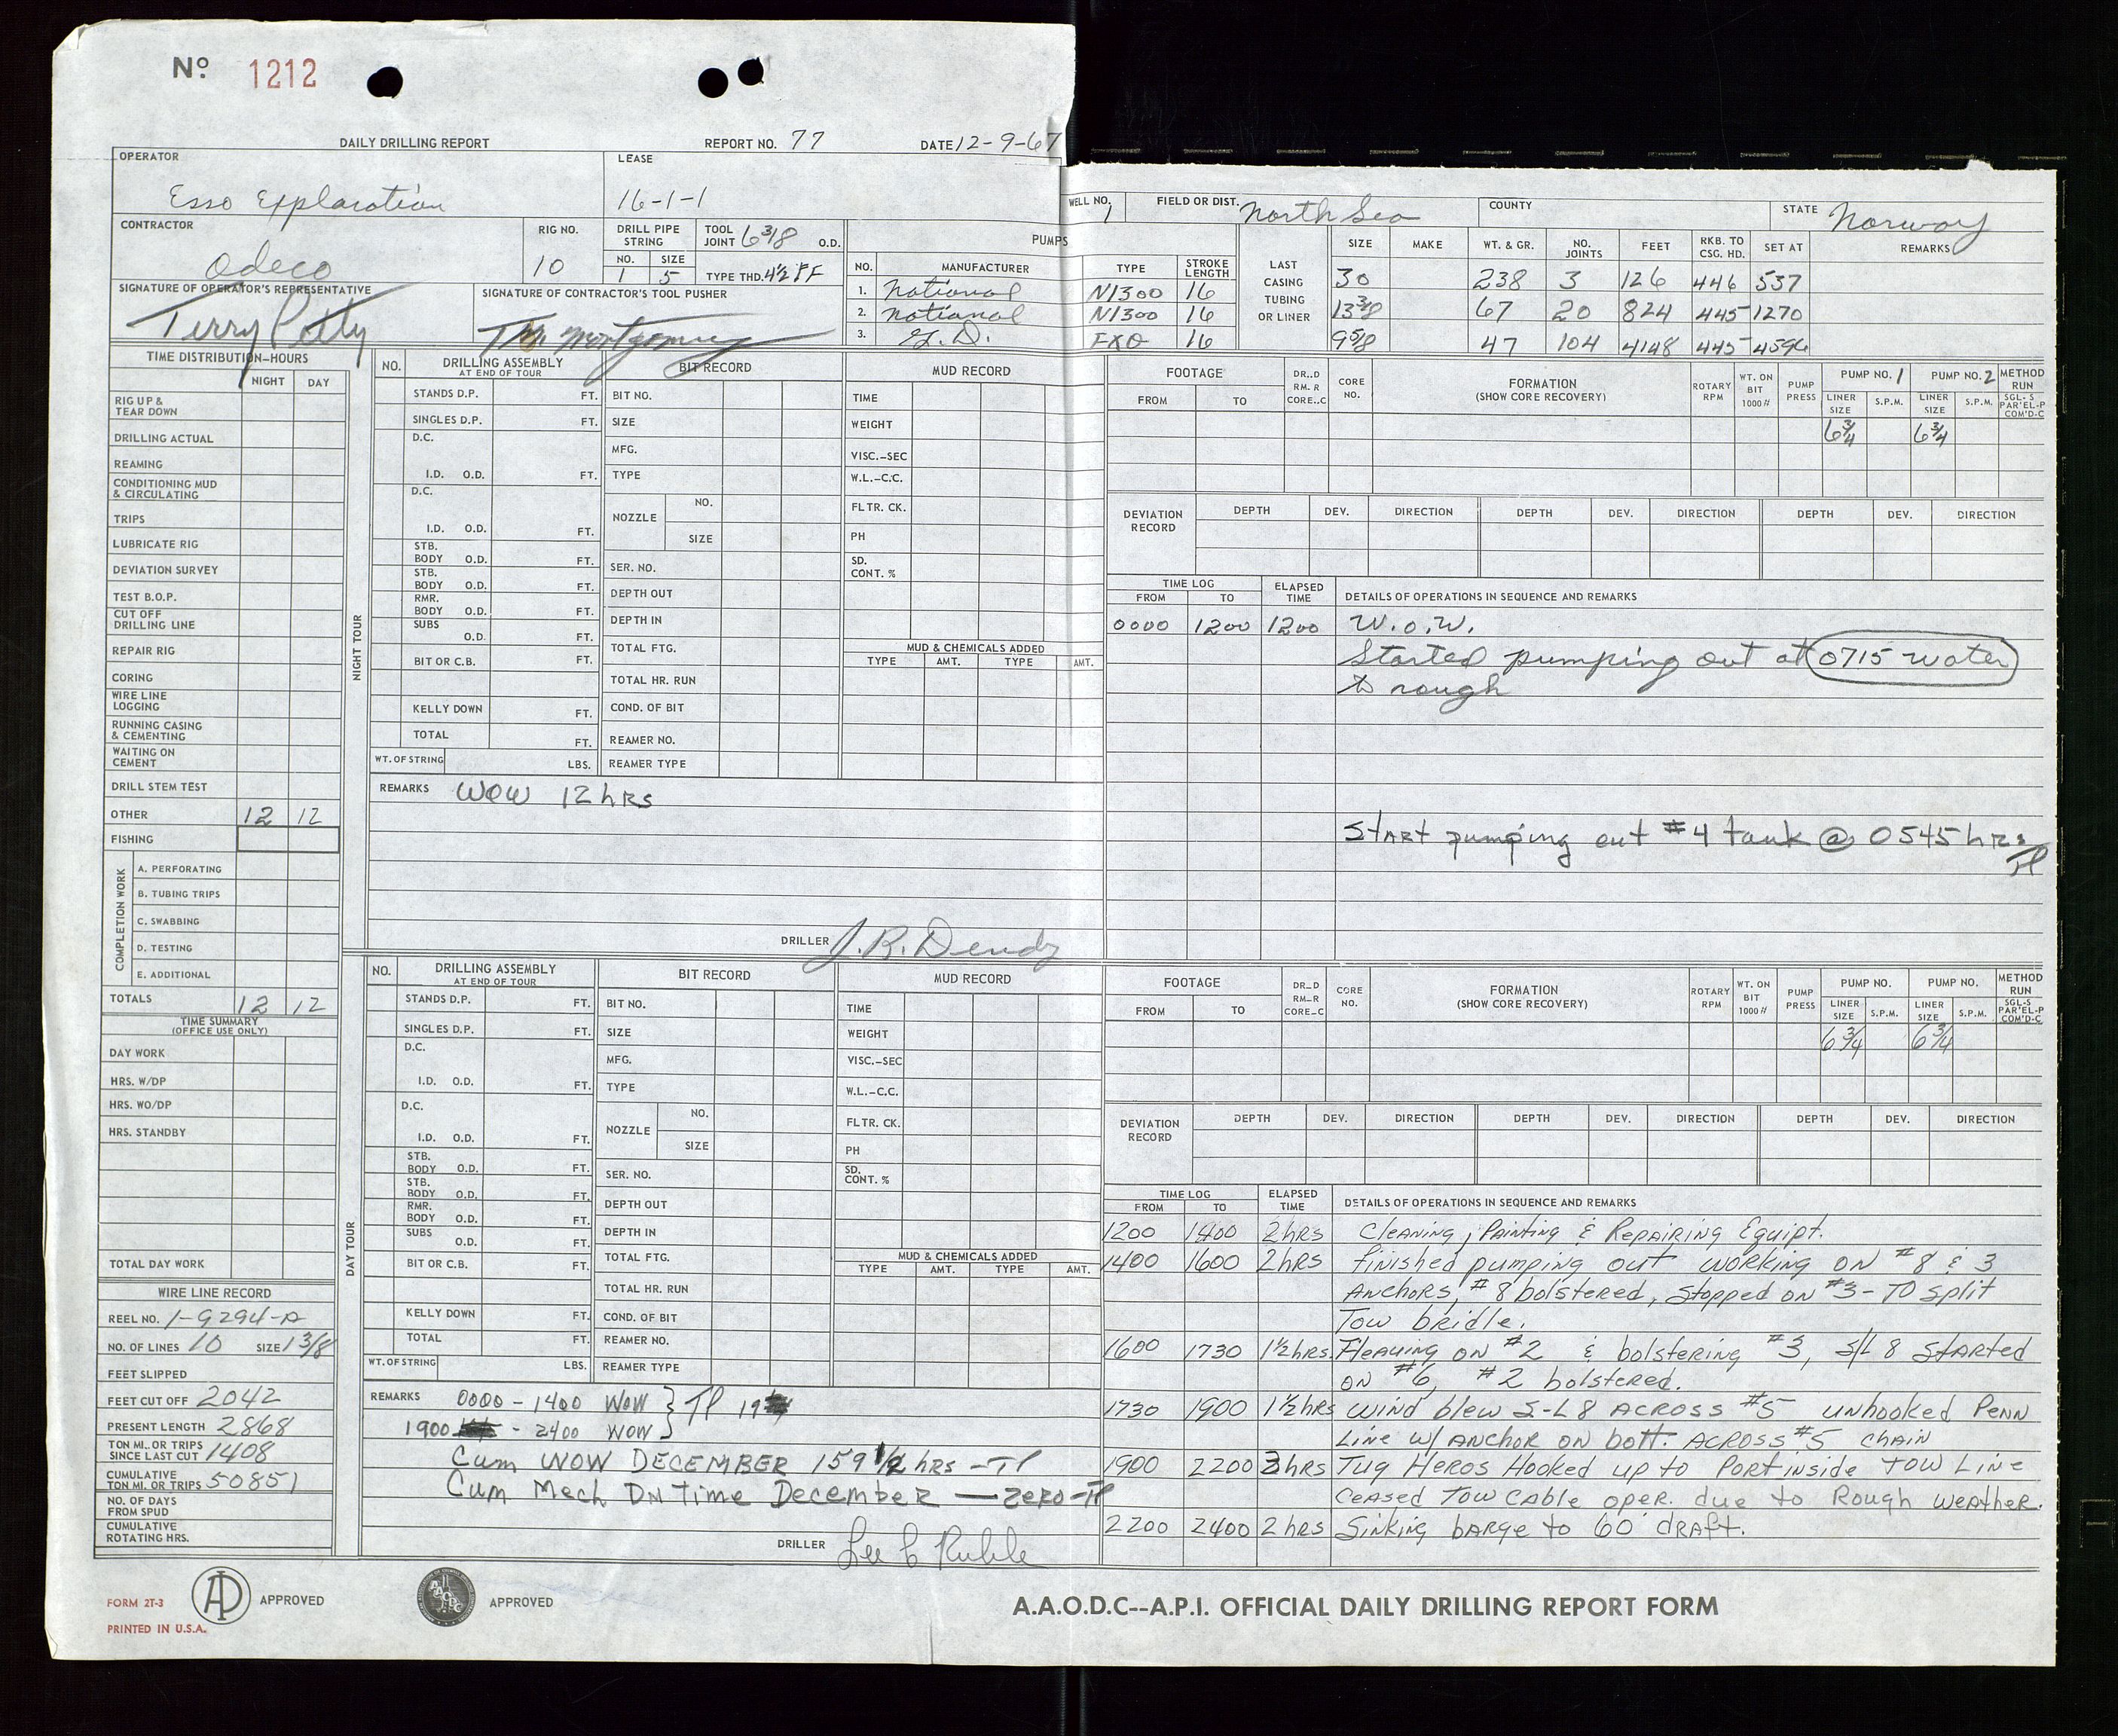 Nº 1212
DAILY DRILLING REPORT REPORT NO. 77 DATE 12-9-67
OPERATOR Esso Exploration LEASE 16-1-1 WELL NO. 1 FIELD OR DIST. North Sea COUNTY STATE Norway
CONTRACTOR Odeco RIG NO. 10
DRILL PIPE STRING NO. 1 SIZE 5 TOOL JOINT 6 3/8 O.D. TYPE THD. 4½ IF
SIGNATURE OF OPERATOR'S REPRESENTATIVE Terry Petty
SIGNATURE OF CONTRACTOR'S TOOL PUSHER Montgomery
PUMPS
NO. MANUFACTURER TYPE STROKE LENGTH
1. National N1300 16
2. National N1300 16
3. G.D. FXO 16
LAST CASING TUBING OR LINER
SIZE MAKE WT. & GR. NO. JOINTS FEET RKB. TO CSG. HD. SET AT REMARKS
30 238 3 126 446 537
13 3/8 67 20 824 445 1270
9 5/8 47 104 4148 445 4596
TIME DISTRIBUTION-HOURS
NIGHT DAY
RIG UP & TEAR DOWN
DRILLING ACTUAL
REAMING
CONDITIONING MUD & CIRCULATING
TRIPS
LUBRICATE RIG
DEVIATION SURVEY
TEST B.O.P.
CUT OFF DRILLING LINE
REPAIR RIG
CORING
WIRE LINE LOGGING
RUNNING CASING & CEMENTING
WAITING ON CEMENT
DRILL STEM TEST
OTHER 12 12
FISHING
COMPLETION WORK
A. PERFORATING
B. TUBING TRIPS
C. SWABBING
D. TESTING
E. ADDITIONAL
TOTALS 12 12
TIME SUMMARY (OFFICE USE ONLY)
DAY WORK
HRS. W/DP
HRS. WO/DP
HRS. STANDBY
TOTAL DAY WORK
WIRE LINE RECORD
REEL NO. 1-9294-A
NO. OF LINES 10 SIZE 1 3/8
FEET SLIPPED
FEET CUT OFF 2042
PRESENT LENGTH 2868
TON MI. OR TRIPS SINCE LAST CUT 1408
CUMULATIVE TON MI. OR TRIPS 50851
NO. OF DAYS FROM SPUD
CUMULATIVE ROTATING HRS.
NIGHT TOUR
NO. DRILLING ASSEMBLY AT END OF TOUR
STANDS D.P. FT.
SINGLES D.P. FT.
D.C.
I.D. O.D. FT.
D.C.
I.D. O.D. FT.
STB. BODY O.D. FT.
STB. BODY O.D. FT.
RMR. BODY O.D. FT.
SUBS O.D. FT.
BIT OR C.B. FT.
KELLY DOWN FT.
TOTAL FT.
WT. OF STRING LBS.
BIT RECORD
BIT NO.
SIZE
MFG.
TYPE
NOZZLE NO.
SIZE
SER. NO.
DEPTH OUT
DEPTH IN
TOTAL FTG.
TOTAL HR. RUN
COND. OF BIT
REAMER NO.
REAMER TYPE
MUD RECORD
TIME
WEIGHT
VISC.-SEC
W.L.-C.C.
FLTR. CK.
PH
SD. CONT. %
MUD & CHEMICALS ADDED
TYPE AMT. TYPE AMT.
REMARKS WOW 12 hrs
DRILLER J.R. Dendy
FOOTAGE FROM TO DR..D RM.R CORE..C CORE NO. FORMATION (SHOW CORE RECOVERY) ROTARY RPM WT. ON BIT 1000# PUMP PRESS PUMP NO. 1 LINER SIZE S.P.M. PUMP NO. 2 LINER SIZE S.P.M. METHOD RUN SGL-S PAR'EL-P COM'D-C
6¾ 6¾
DEVIATION RECORD DEPTH DEV. DIRECTION DEPTH DEV. DIRECTION DEPTH DEV. DIRECTION
TIME LOG FROM TO ELAPSED TIME DETAILS OF OPERATIONS IN SEQUENCE AND REMARKS
0000 1200 1200 W.O.W.
Started pumping out at 0715 water
to rough
Start pumping out #4 tank @ 0545 hrs TP
DAY TOUR
NO. DRILLING ASSEMBLY AT END OF TOUR
STANDS D.P. FT.
SINGLES D.P. FT.
D.C.
I.D. O.D. FT.
D.C.
I.D. O.D. FT.
STB. BODY O.D. FT.
STB. BODY O.D. FT.
RMR. BODY O.D. FT.
SUBS O.D. FT.
BIT OR C.B. FT.
KELLY DOWN FT.
TOTAL FT.
WT. OF STRING LBS.
BIT RECORD
BIT NO.
SIZE
MFG.
TYPE
NOZZLE NO.
SIZE
SER. NO.
DEPTH OUT
DEPTH IN
TOTAL FTG.
TOTAL HR. RUN
COND. OF BIT
REAMER NO.
REAMER TYPE
MUD RECORD
TIME
WEIGHT
VISC.-SEC
W.L.-C.C.
FLTR. CK.
PH
SD. CONT. %
MUD & CHEMICALS ADDED
TYPE AMT. TYPE AMT.
REMARKS 0000 - 1400 WOW } TP 19
1900 - 2400 WOW
Cum WOW DECEMBER 159 1/2 hrs - TP
Cum Mech Dn Time December — zero - TP
DRILLER Lee C Ruble
FOOTAGE FROM TO DR_D RM-R CORE_C CORE NO. FORMATION (SHOW CORE RECOVERY) ROTARY RPM WT. ON BIT 1000# PUMP PRESS PUMP NO. LINER SIZE S.P.M. PUMP NO. LINER SIZE S.P.M. METHOD RUN SGL-S PAR'EL-P COM'D-C
6¾ 6¾
DEVIATION RECORD DEPTH DEV. DIRECTION DEPTH DEV. DIRECTION DEPTH DEV. DIRECTION
TIME LOG FROM TO ELAPSED TIME DETAILS OF OPERATIONS IN SEQUENCE AND REMARKS
1200 1400 2 hrs Cleaning, Painting & Repairing Equipt.
1400 1600 2 hrs finished pumping out working on #8 & 3
Anchors, #8 bolstered, stopped on #3 - To split
Tow bridle.
1600 1730 1½ hrs Heaving on #2 & bolstering #3, S/L 8 started
on #6, #2 bolstered.
1730 1900 1½ hrs wind blew S-L 8 across #5 unhooked Penn
Line w/ anchor on bott. across #5 chain
1900 2200 3 hrs Tug Heros Hooked up to Port inside tow Line
ceased tow cable oper. due to Rough weather.
2200 2400 2 hrs Sinking barge to 60' draft.
FORM 2T-3
PRINTED IN U.S.A.
API APPROVED
AAODC APPROVED
A.A.O.D.C--A.P.I. OFFICIAL DAILY DRILLING REPORT FORM